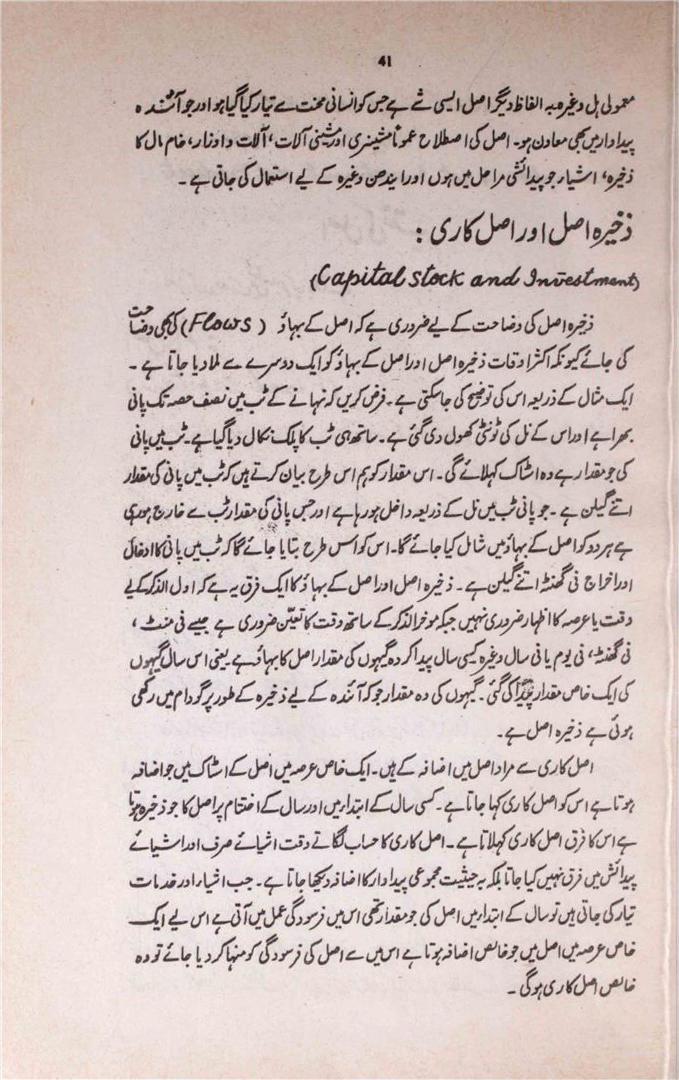 41
معمولی ہل وغیرہ بہ الفاظ دیگر اصل ایسی شے ہے جس کو انسانی محنت سے تیار کیا گیا ہو اور جو آئندہ
پیداوار میں بھی معاون ہو۔ اصل کی اصطلاح عموماً مشینری اور مشینی آلات، آلات و اوزار، خام مال کا
ذخیرہ، اشیاء جو پیدائشی مراحل میں ہوں اور ایندھن وغیرہ کے لیے استعمال کی جاتی ہے۔
ذخیرہ اصل اور اصل کاری :
(Capital Stock and Investment)
ذخیرہ اصل کی وضاحت کے لیے ضروری ہے کہ اصل کے بہاؤ (Flows) کی بھی وضاحت
کی جائے کیونکہ اکثر اوقات ذخیرہ اصل اور اصل کے بہاؤ کو ایک دوسرے سے ملا دیا جاتا ہے۔
ایک مثال کے ذریعہ اس کی توضیح کی جاسکتی ہے۔ فرض کریں کہ نہانے کے ٹب میں نصف حصہ تک پانی
بھرا ہے اور اس کے نل کی ٹونٹی کھول دی گئی ہے۔ ساتھ ہی ٹب کا پلگ نکال دیا گیا ہے۔ ٹب میں پانی
کی جو مقدار ہے وہ اسٹاک کہلائے گی۔ اس مقدار کو ہم اس طرح بیان کرتے ہیں کہ ٹب میں پانی کی مقدار
اتنے گیلن ہے۔ جو پانی ٹب میں نل کے ذریعہ داخل ہو رہا ہے اور جس پانی کی مقدار ٹب سے خارج ہو رہی
ہے ہر دو کو اصل کے بہاؤ میں شامل کیا جائے گا۔ اس کو اس طرح بتایا جائے گا کہ ٹب میں پانی کا ادخال
اور اخراج فی گھنٹہ اتنے گیلن ہے۔ ذخیرہ اصل اور اصل کے بہاؤ کا ایک فرق یہ ہے کہ اول الذکر کے لیے
وقت یا عرصہ کا اظہار ضروری نہیں جبکہ موخر الذکر کے ساتھ وقت کا تعیّن ضروری ہے جیسے فی منٹ،
فی گھنٹہ، فی یوم یا فی سال وغیرہ کسی سال پیدا کردہ گیہوں کی مقدار اصل کا بہاؤ ہے یعنی اس سال گیہوں
کی ایک خاص مقدار پیدا کی گئی۔ گیہوں کی وہ مقدار جو کہ آئندہ کے لیے ذخیرہ کے طور پر گودام میں رکھی
ہوئی ہے ذخیرہ اصل ہے۔
اصل کاری سے مراد اصل میں اضافہ کے ہیں۔ ایک خاص عرصہ میں اصل کے اسٹاک میں جو اضافہ
ہوتا ہے اس کو اصل کاری کہا جاتا ہے۔ کسی سال کے ابتدا میں اور سال کے اختتام پر اصل کا جو ذخیرہ ہوتا
ہے اس کا فرق اصل کاری کہلاتا ہے۔ اصل کاری کا حساب لگاتے وقت اشیائے صرف اور اشیائے
پیدائش میں فرق نہیں کیا جاتا بلکہ بہ حیثیت مجموعی پیداوار کا اضافہ دیکھا جاتا ہے۔ جب اشیاء اور خدمات
تیار کی جاتی ہیں تو سال کے ابتدا میں اصل کی جو مقدار تھی اس میں فرسودگی عمل میں آتی ہے اس لیے ایک
خاص عرصہ میں اصل میں جو خالص اضافہ ہوتا ہے اس میں سے اصل کی فرسودگی کو منہا کر دیا جائے تو وہ
خالص اصل کاری ہوگی۔